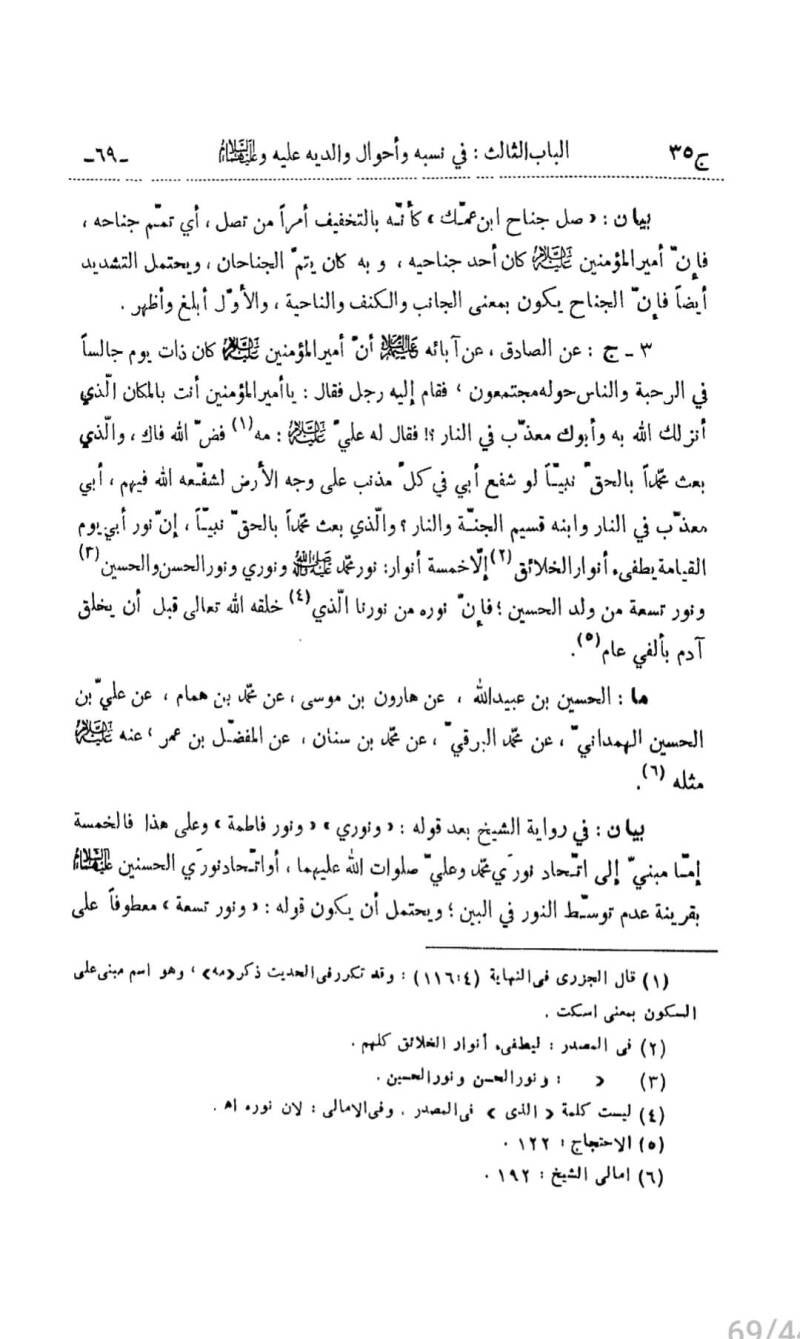 ج٣٥ الباب الثالث : في نسبه وأحوال والديه عليه و عليهما السلام -٦٩-
بيان : « صل جناح ابن عمّك » كأنّه بالتخفيف أمراً من تصل ، أي تمّم جناحه ،
فإنّ أميرالمؤمنين عليه السلام كان أحد جناحيه ، و به كان يتمّ الجناحان ، ويحتمل التشديد
أيضاً فإنّ الجناح يكون بمعنى الجانب والكنف والناحية ، والأوّل أبلغ وأظهر .
٣ ـ ج : عن الصادق ، عن آبائه عليهم السلام أنّ أميرالمؤمنين عليه السلام كان ذات يوم جالساً
في الرحبة والناس حوله مجتمعون ، فقام إليه رجل فقال : ياأميرالمؤمنين أنت بالمكان الّذي
أنزلك الله به وأبوك معذّب في النار ؟! فقال له عليّ عليه السلام : مه (١) فضّ الله فاك ، والّذي
بعث محمّداً بالحقّ نبيّاً لو شفع أبي في كلّ مذنب على وجه الأرض لشفّعه الله فيهم ، أبي
معذّب في النار وابنه قسيم الجنّة والنار ؟ والّذي بعث محمّداً بالحقّ نبيّاً ، إنّ نور أبي يوم
القيامة يطفىء أنوار الخلائق (٢) إلّا خمسة أنوار : نور محمّد صلى الله عليه وآله ونوري ونور الحسن والحسين (٣)
ونور تسعة من ولد الحسين ؛ فإنّ نوره من نورنا الّذي (٤) خلقه الله تعالى قبل أن يخلق
آدم بألفي عام (٥).
ما : الحسين بن عبيدالله ، عن هارون بن موسى ، عن محمّد بن همام ، عن عليّ بن
الحسين الهمدانيّ ، عن محمّد البرقيّ ، عن محمّد بن سنان ، عن المفضّل بن عمر ، عنه عليه السلام
مثله (٦).
بيان : في رواية الشيخ بعد قوله : « ونوري » « ونور فاطمة » وعلى هذا فالخمسة
إمّا مبنيّ إلى اتّحاد نورَي محمّد وعليّ صلوات الله عليهما ، أو اتّحاد نورَي الحسنين عليهما السلام
بقرينة عدم توسّط النور في البين ؛ ويحتمل أن يكون قوله : « ونور تسعة » معطوفاً على
(١) قال الجزرى فى النهاية (٤:١١٦) : وقد تكرر فى الحديث ذكر «مه» ، وهو اسم مبنى على
السكون بمعنى اسكت .
(٢) فى المصدر : ليطفىء أنوار الخلائق كلهم .
(٣) « : ونور الحسن ونور الحسين .
(٤) ليست كلمة « الذى » فى المصدر . وفى الامالى : لان نوره اه .
(٥) الاحتجاج : ١٢٢ .
(٦) امالى الشيخ : ١٩٢ .